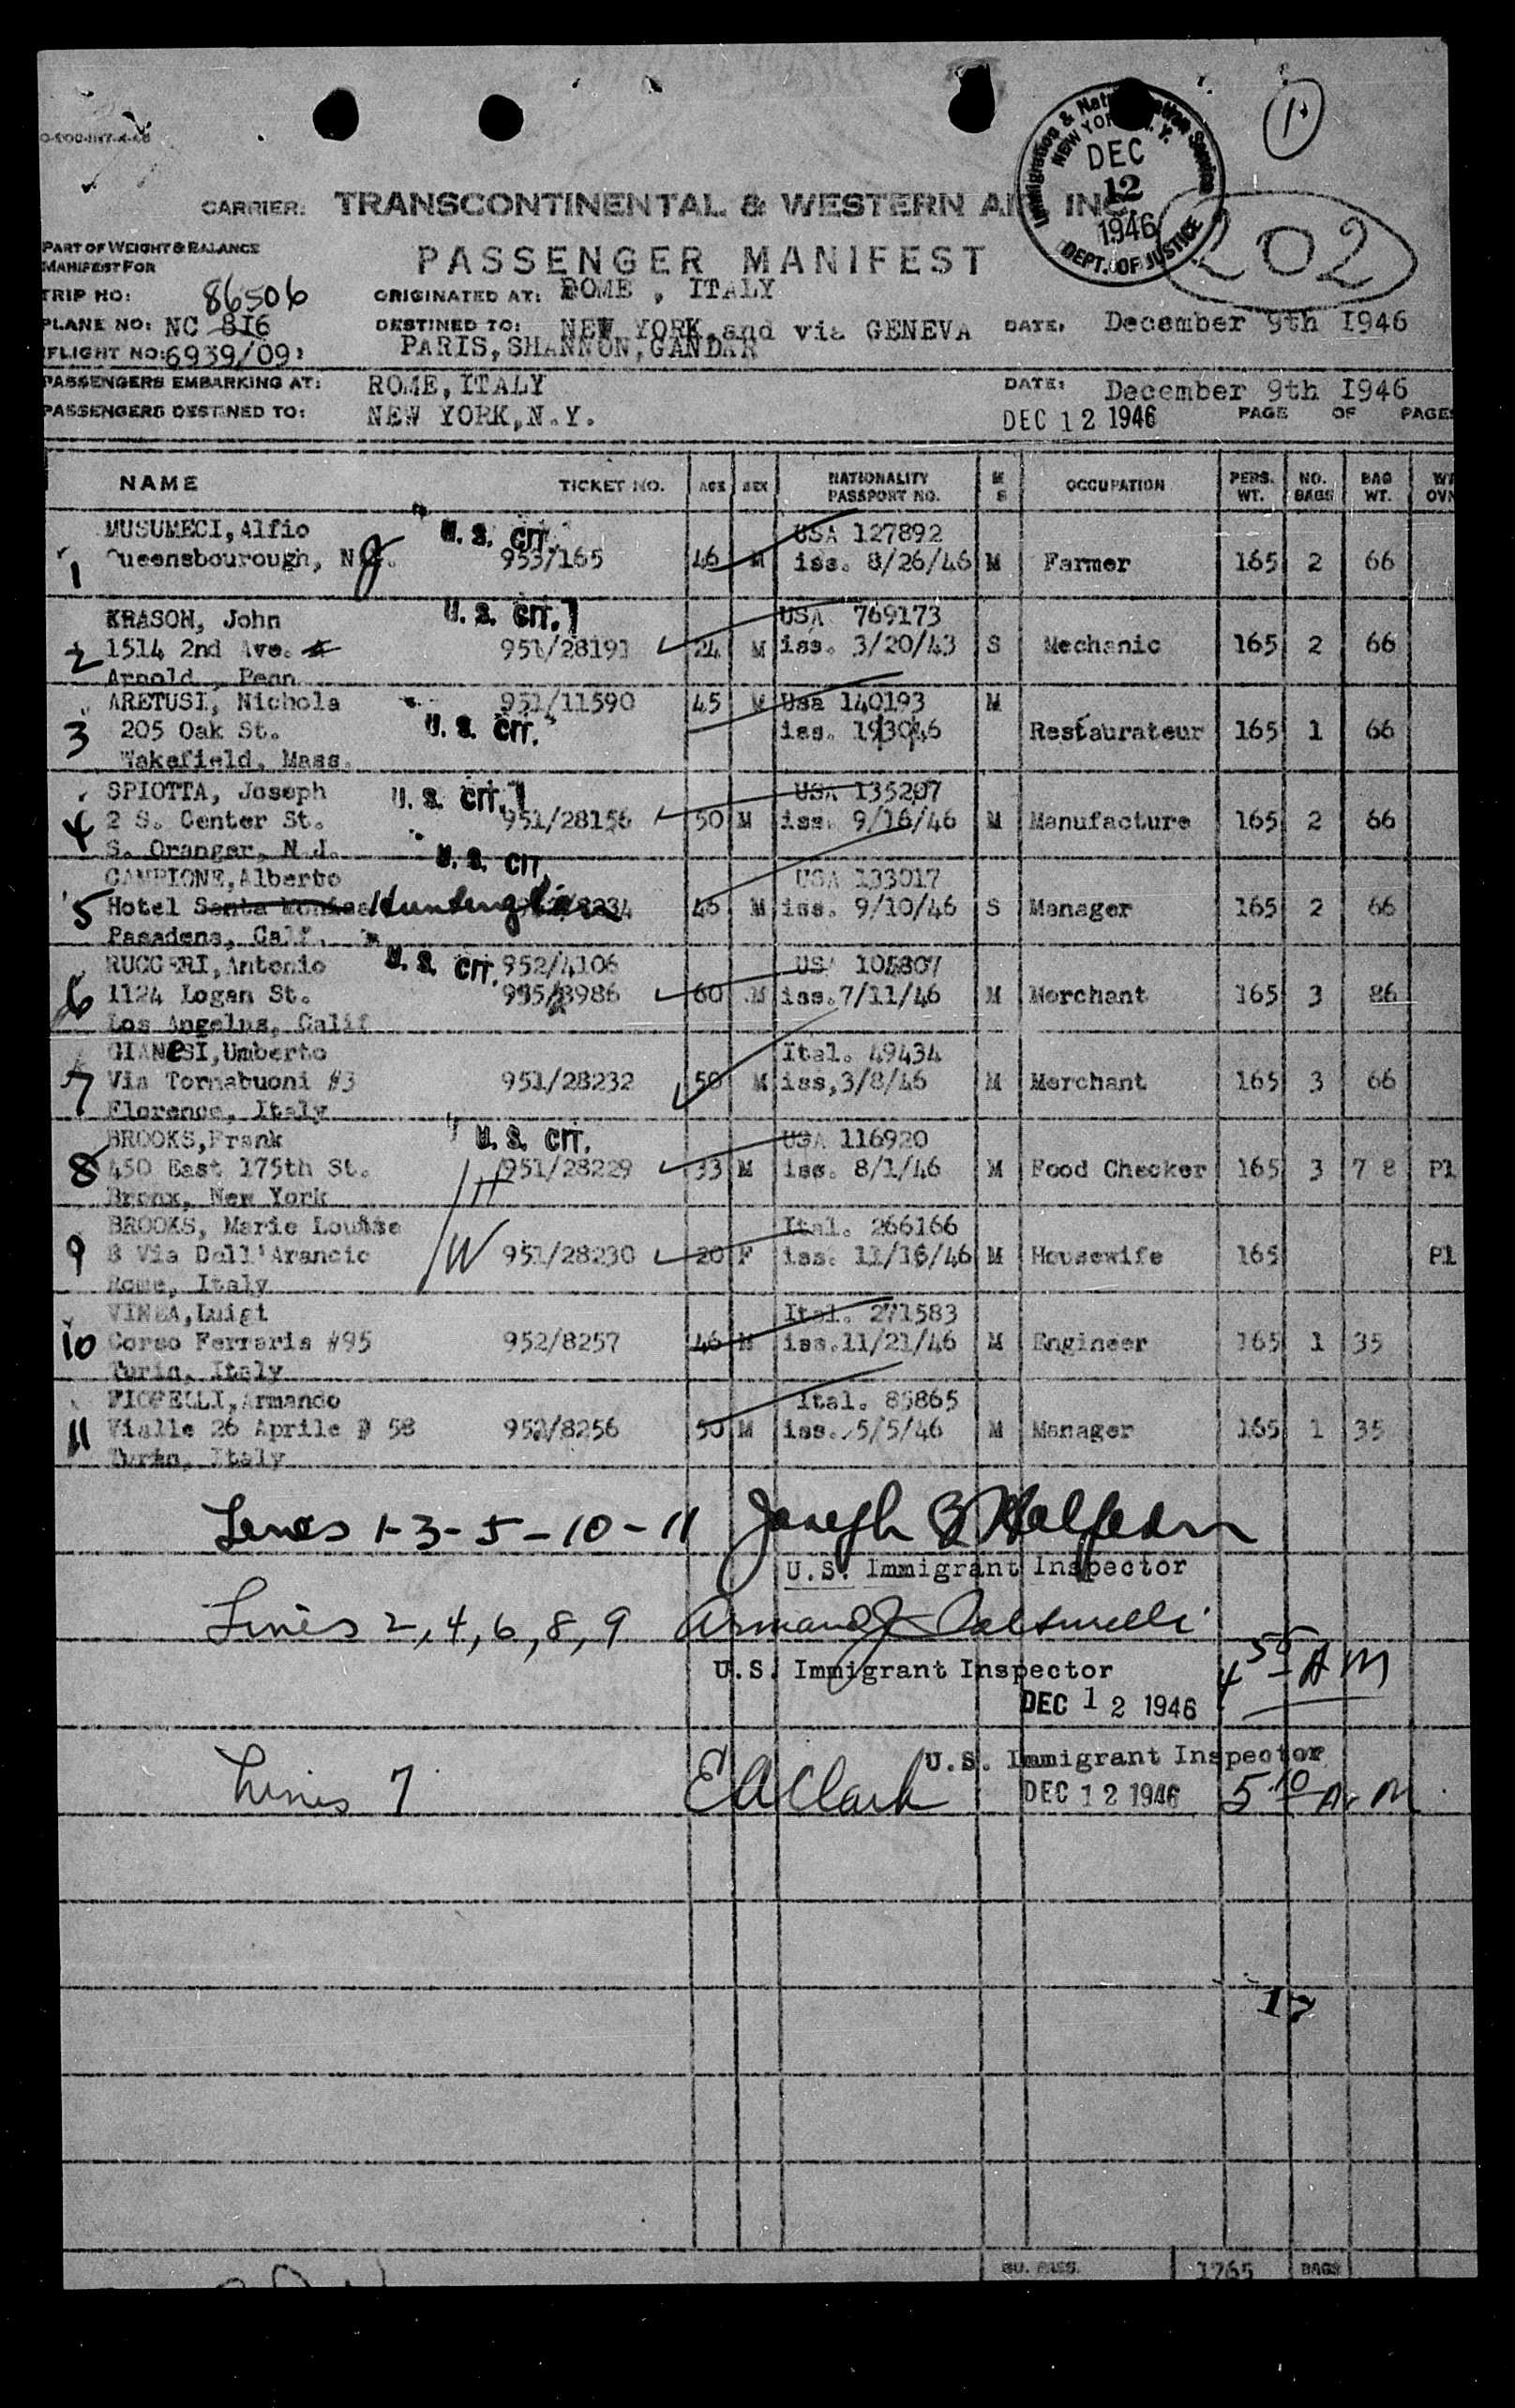 1.
Immigration & Naturalization Service
NEW YORK, N. Y.
DEC
12
1946
DEPT. OF JUSTICE
202
CARRIER: TRANSCONTINENTAL & WESTERN AIR INC.
PART OF WEIGHT & BALANCE
MANIFEST FOR
PASSENGER MANIFEST
TRIP NO: 86506 ORIGINATED AT: ROME , ITALY
PLANE NO: NC 8I6 DESTINED TO: NEW YORK,and via GENEVA DATE: December 9th I946
FLIGHT NO: 6939/09 PARIS,SHANNON,GANDAR
PASSENGERS EMBARKING AT: ROME,ITALY DATE: December 9th I946
PASSENGERS DESTINED TO: NEW YORK,N.Y. DEC 12 1946 PAGE OF PAGES
NAME TICKET NO. AGE SEX NATIONALITY PASSPORT NO. M S OCCUPATION PERS. WT. NO. BAGS BAG WT.
MUSUMECI,Alfio U. S. CIT. USA 127892
1 Queensbourough, N.J. 953/165 46 M iss. 8/26/46 M Farmer 165 2 66
KRASON, John U. S. CIT. USA 769173
2 1514 2nd Ave. 951/28191 24 M iss. 3/20/43 S Mechanic 165 2 66
Arnold, Penn
ARETUSI, Nichola 951/11590 45 M Usa 140193 M
3 205 Oak St. U. S. CIT. iss. 193046 Restaurateur 165 1 66
Wakefield, Mass.
SPIOTTA, Joseph U. S. CIT. USA 135207
4 2 S. Center St. 951/28156 50 M iss. 9/16/46 M Manufacture 165 2 66
S. Oranger, N.J.
CAMPIONE,Alberto U. S. CIT. USA 133017
5 Hotel Santa Monica Huntington 46 M iss. 9/10/46 S Manager 165 2 66
Pasadena, Calf.
RUGGERI,Antonio U. S. CIT. 952/4106 USA 104807
6 1124 Logan St. 955/8986 60 M iss.7/11/46 M Merchant 165 3 86
Los Angelus, Calif
GIANeSI,Umberto Ital. 49434
7 Via Tornabuoni #3 951/28232 50 M iss,3/8/46 M Merchant 165 3 66
Florence, Italy
BROOKS,Frank U. S. CIT. USA 116920
8 450 East 175th St. H 951/28229 33 M iss. 8/1/46 M Food Checker 165 3 7 8 Pl
Bronx, New York
BROOKS, Marie Louise Ital. 266166
9 8 Via Dell'Arancio W 951/28230 20 F iss. 11/16/46 M Housewife 165 Pl
Rome, Italy
VINEA,Luigi Ital. 271583
10 Corso Ferraris #95 952/8257 46 M iss.11/21/46 M Engineer 165 1 35
Turin, Italy
FIORELLI,Armando Ital. 85865
11 Vialle 26 Aprile # 58 952/8256 50 M iss. 5/5/46 M Manager 165 1 35
Turin, Italy
Lines 1-3-5-10-11 Joseph
U.S. Immigrant Inspector
Lines 2,4,6,8,9 Armand J.
U.S. Immigrant Inspector 4 55 AM
DEC 12 1946
U.S. Immigrant Inspector
Lines 7 E A Clark DEC 12 1946 5 10 A.M.
17
1765 BAGS